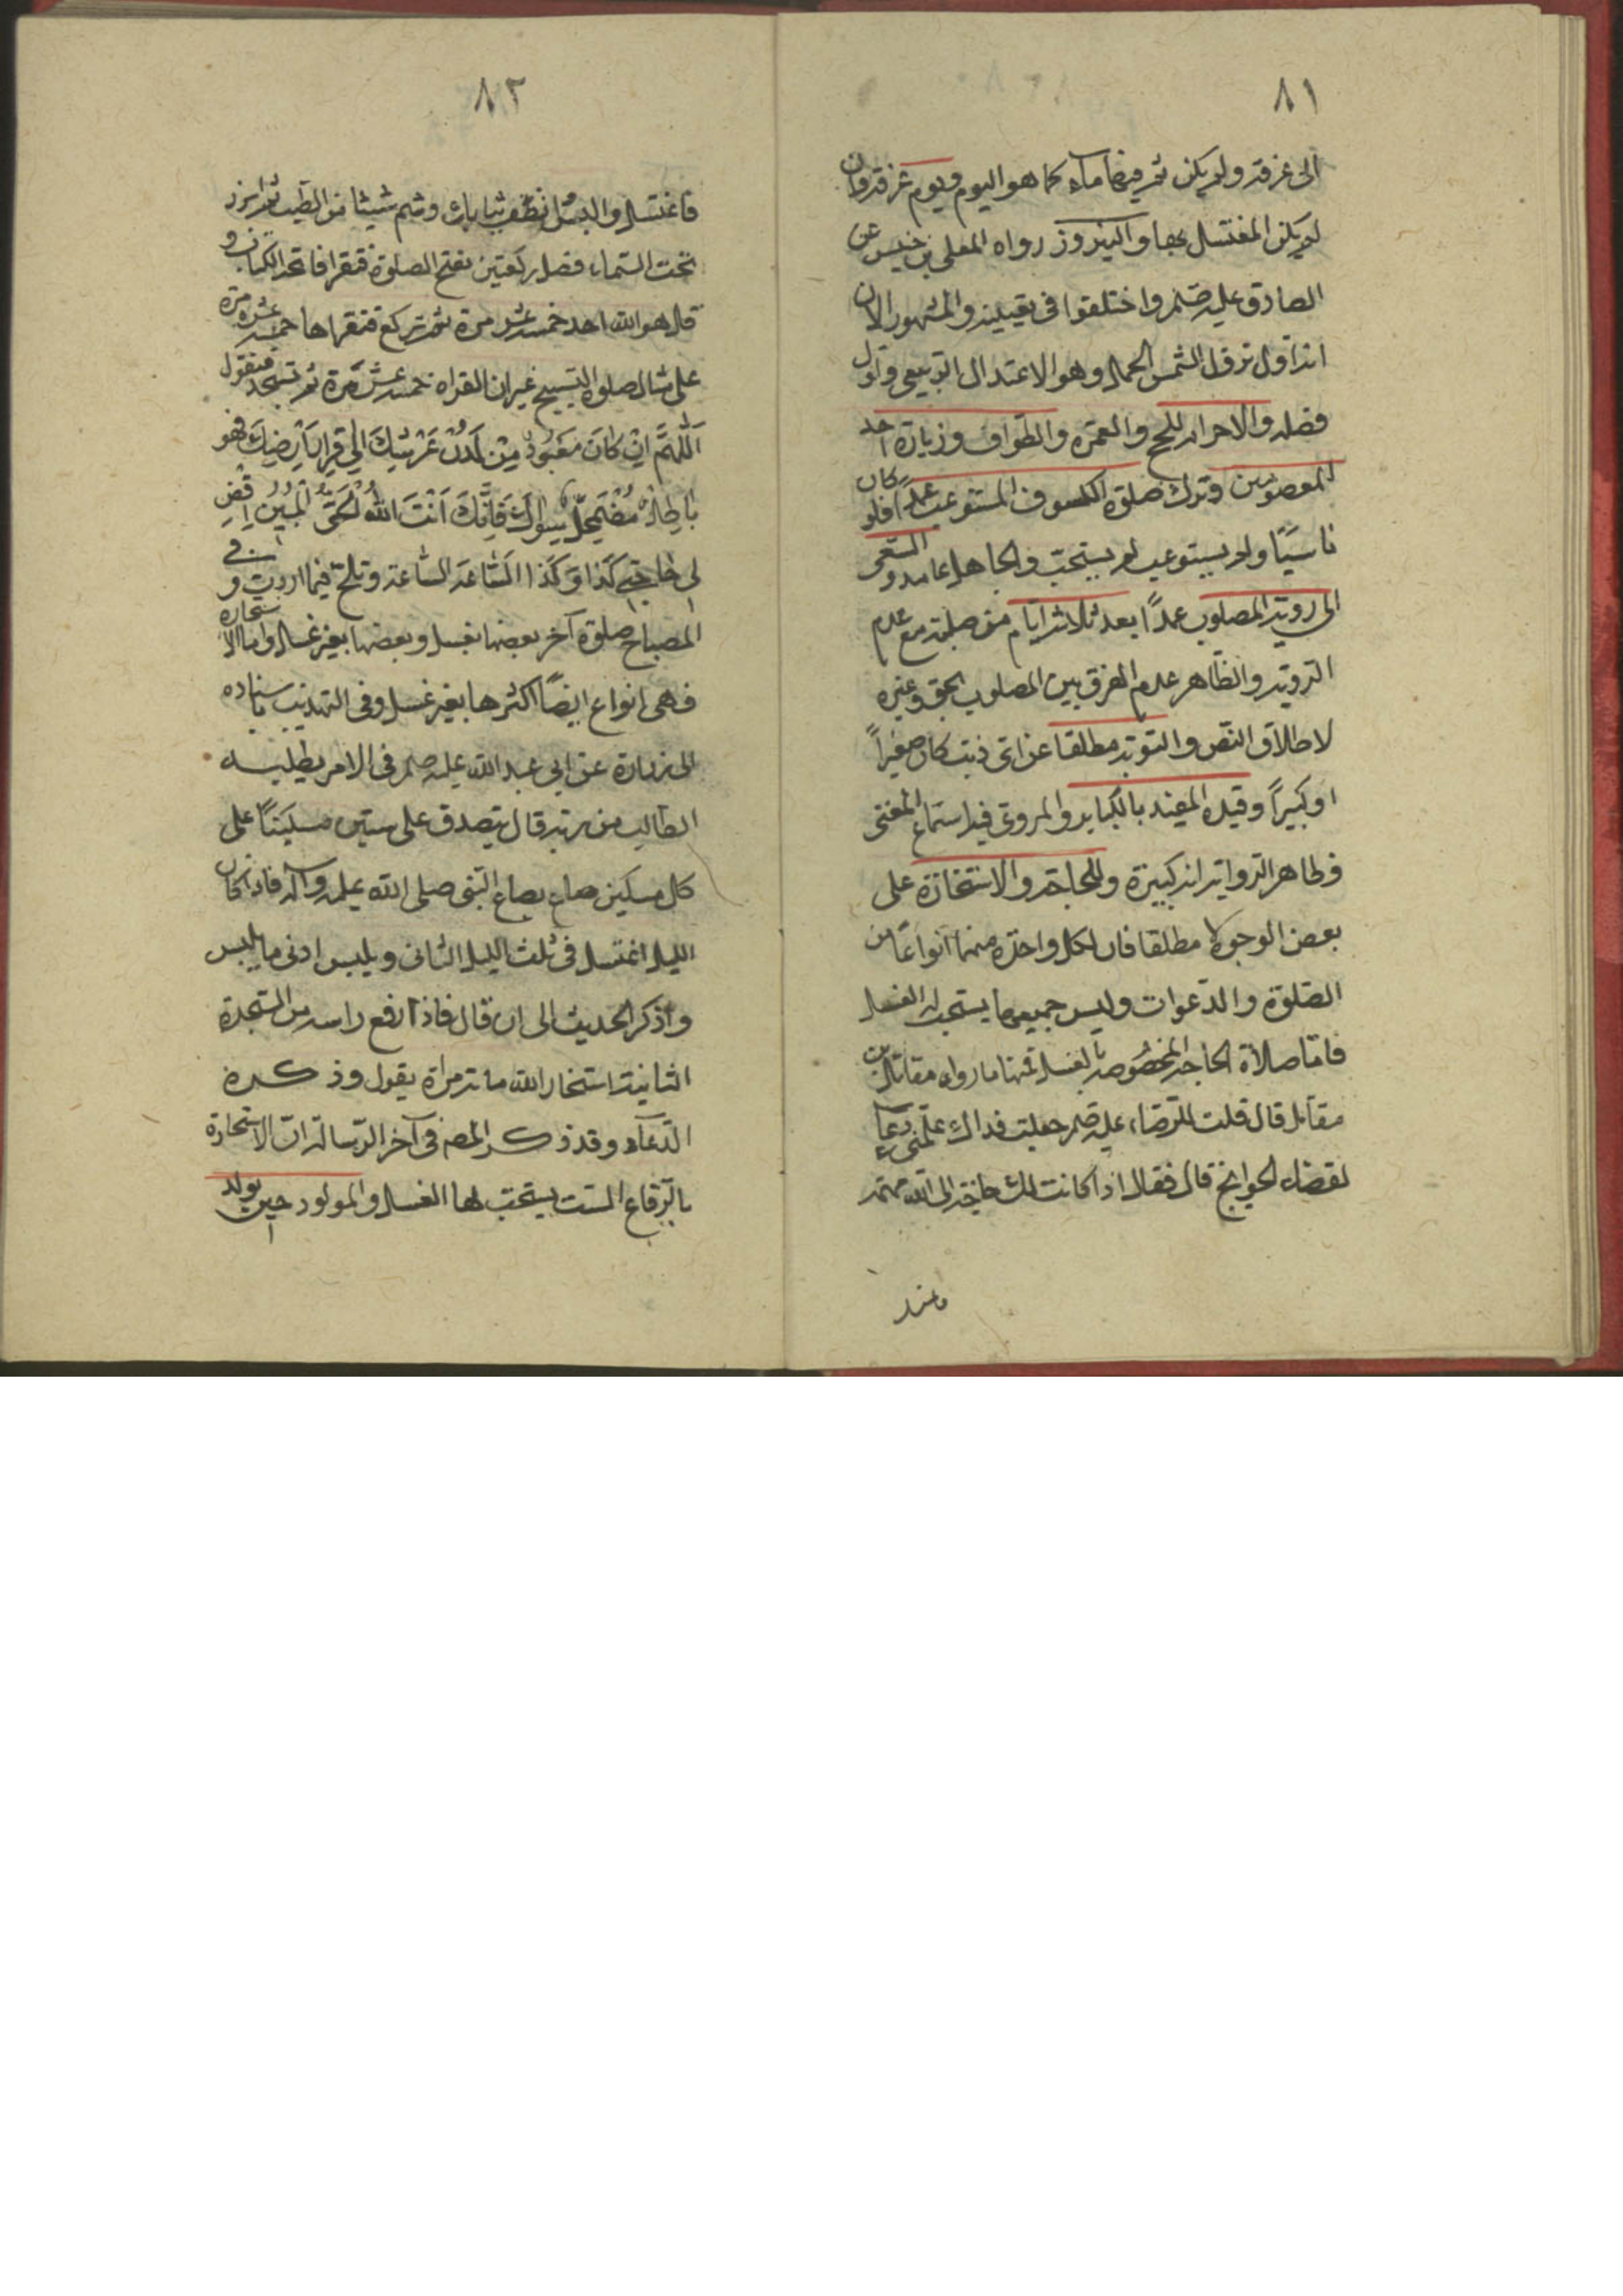 ٨١
الى غرفة ولم يكن ثم فيها ماء كما هو اليوم ويوم عرفة وان
لم يكن المغتسل بها والنيروز رواه المعلى بن خنيس عن
الصادق عليه صلم واختلفوا فى تعيينه والمشهور الان
انه اول نزول الشمس الحمل وهو الاعتدال الربيعى واول
فصله والاحرام للحج والعمرة والطواف وزيارة احد
المعصومين وترك صلوة الكسوف المستوعب عمدا فلو كان
ناسيًا او لم يستوعب لم يستحب والجاهل عامد والسعى
الى روية المصلوب عمدًا بعد ثلاثة ايام من صلبه مع عدم
الروية والظاهر عدم الفرق بين المصلوب بحق وغيره
لاطلاق النص والتوبة مطلقا عن اى ذنب كان صغيراً
او كبيراً وقيده المفيد بالكباير والمروى فيه استماع المغنى
فظاهر الرواية انه كبيرة وللحاجة والاستخارة على
بعض الوجوه لا مطلقا فان لكل واحدة منهما انواعًا من
الصلوة والدعوات وليس جميعها يستحب له الغسل
فامّا صلاة الحاجة المخصوصة بالغسل فمنها ما رواه مقاتل بن
مقاتل قال قلت للرضاء عليه صلم جعلت فداك علمنى دعاء
لقضاء الحوائج قال فقال اذا كانت لك حاجة الى الله مهمة
فاغتسل
٨٢
فاغتسل والبس انظف ثيابك وشم شيئا من الطيب ثم ابرز
تحت السماء فصل ركعتين تفتح الصلوة فتقرا فاتحة الكتاب و
قل هو الله احد خمس عشر مرة ثم تركع فتقراها خمس عشرة مرة
على مثال صلوة التسبيح غير ان القراه خمس عشر مرة ثم تسجد فتقول
اَللّهُمَّ اِنَّ كُلَ مَعْبُودٍ مِنْ لَدُنْ عَرْشِكَ اِلى قَرارِ اَرْضِكَ فهو
باطِلٌ مُضْمَحِلٌّ سِواكَ فَاِنَّكَ اَنْتَ اللهُ الْحَقُّ الْمُبِيْنُ اِقْضِ
لى حاجتى كَذا وَ كَذا السّاعَة السّاعة وتلح فيما اردت و فى
المصباح صلوة اخر بعضها بغسل وبعضها بغير غسل واما الاستخارة
فهى انواع ايضًا اكثرها بغير غسل وفى التهذيب باسناده
الى زرارة عن ابى عبد الله عليه صلم فى الامر يطلبه
الطالب من ربه قال يتصدق على ستين مسكينًا على
كل مسكين صاع بصاع النبى صلى الله عليه وآله فاذا كان
الليل اغتسل فى ثلث الليل الثانى ويلبس ادنى ما يلبس
واذكر الحديث الى ان قال فاذا رفع راسه من السجدة
الثانية استخار الله مائة مراة يقول وذكره
الدّعاء وقد ذكر المصم فى آخر الرسالة انّ الاستخارة
بالرقاع الست يستحب لها الغسل والمولود حين يولد